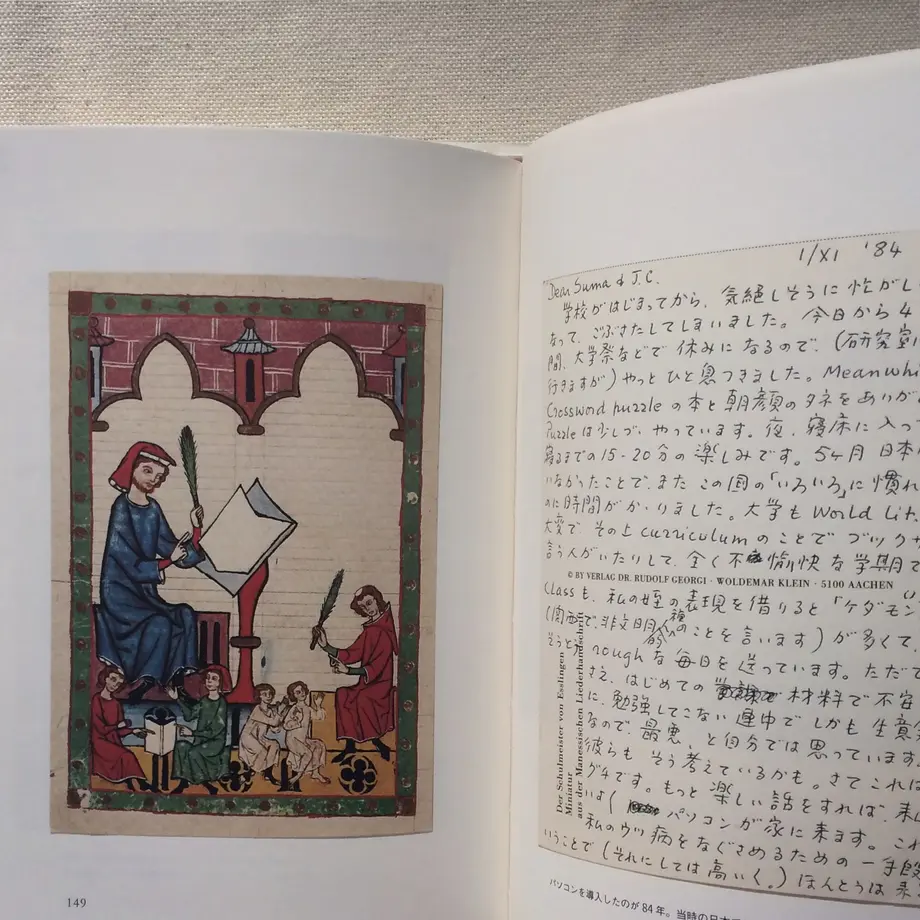 149
1/XI '84
Dear Suma & J.C.
学校がはじまってから、気絶しそうに忙がし
なって、ごぶさたしてしまいました。今日から4
間、大学祭などで休みになるので、(研究室に
行きますが)やっとひと息つきました。Meanwhi
Crossword puzzleの本と朝顔のタネをありが
Puzzleは少しづつやっています。夜、寝床に入っ
寝るまでの15-20分の楽しみです。5ヶ月日本に
いなかったことで、また この国の「いろいろ」に慣れ
のに時間がかゝりました。大学もWorld Lit.
大変で、その上curriculumのことでブツクサ
言う人がいたりして、全く不愉快な学期で
© BY VERLAG DR. RUDOLF GEORGI · WOLDEMAR KLEIN · 5100 AACHEN
Classも、私の姪の表現を借りると「ケダモン
(関西で、非文明人種のことを言います)が多くて、
roughな毎日を送っています。ただで
さえ、はじめての 材料で不安
に、勉強してこない連中でしかも生意
なので、最悪、と自分では思っています。
彼らもそう考えているかも。さてこれは
グチです。もっと楽しい話をすれば、来
いよ パソコンが家に来ます。これ
私のウツ病をなぐさめるための一手段
いうことで(それにしては高いく。)ほんとうは
Der Schulmeister von Esslingen
Miniatur
aus der Manessischen Liederhandschrift
パソコンを導入したのが84年。当時の日本